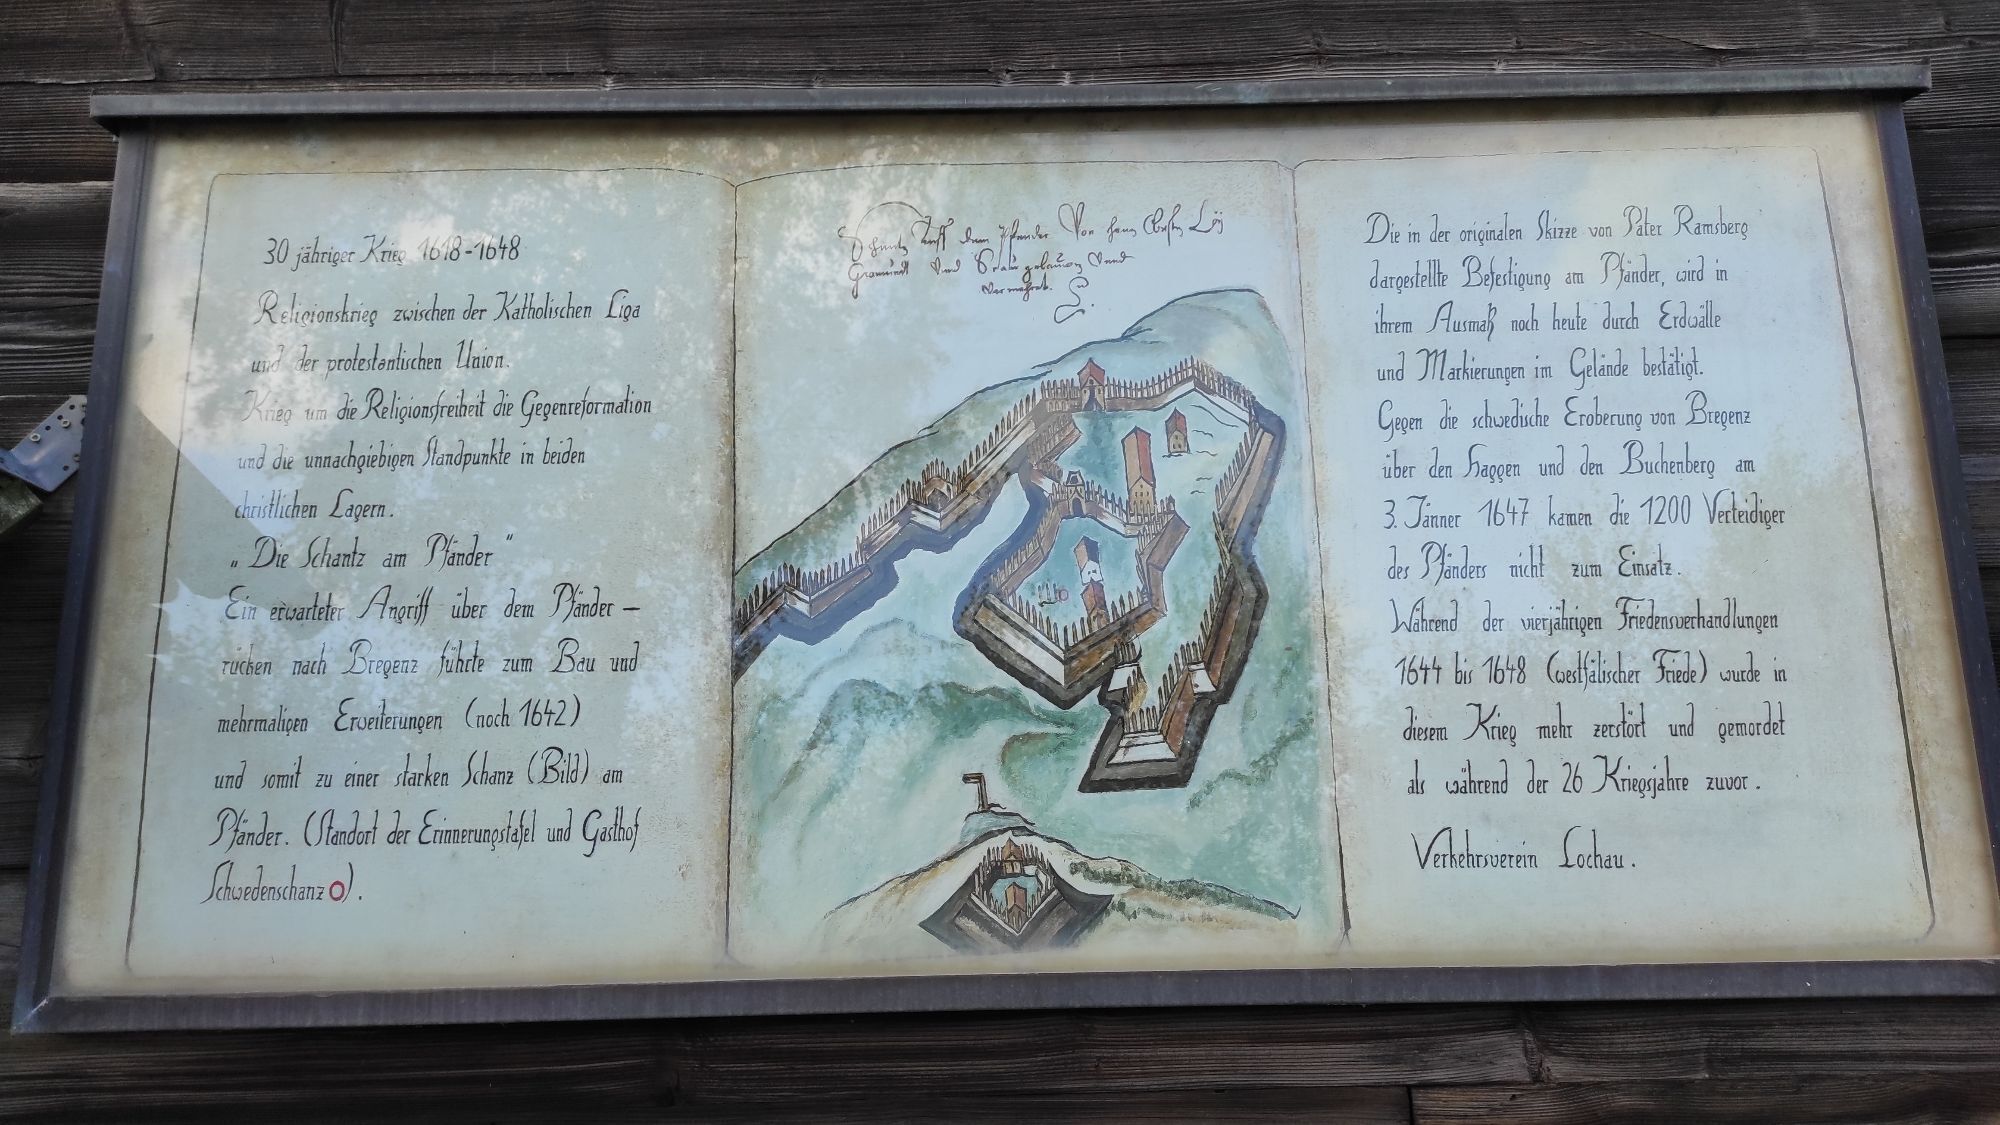 30 jähriger Krieg 1618-1648
Religionskrieg zwischen der Katholischen Liga
und der protestantischen Union.
Krieg um die Religionsfreiheit die Gegenreformation
und die unnachgiebigen Standpunkte in beiden
christlichen Lagern.
„Die Schantz am Pfänder"
Ein erwarteter Angriff über dem Pfänder –
rücken nach Bregenz führte zum Bau und
mehrmaligen Erweiterungen (noch 1642)
und somit zu einer starken Schanz (Bild) am
Pfänder. (Standort der Erinnerungstafel und Gasthof
Schwedenschanz O).
Schantz Auff dem Pfender Von
Vnd
vermehret.
Die in der originalen Skizze von Pater Ramsberg
dargestellte Befestigung am Pfänder, wird in
ihrem Ausmaß noch heute durch Erdwälle
und Markierungen im Gelände bestätigt.
Gegen die schwedische Eroberung von Bregenz
über den Haggen und den Buchenberg am
3. Jänner 1647 kamen die 1200 Verteidiger
des Pfänders nicht zum Einsatz.
Während der vierjährigen Friedensverhandlungen
1644 bis 1648 (westfälischer Friede) wurde in
diesem Krieg mehr zerstört und gemordet
als während der 26 Kriegsjahre zuvor.
Verkehrsverein Lochau.